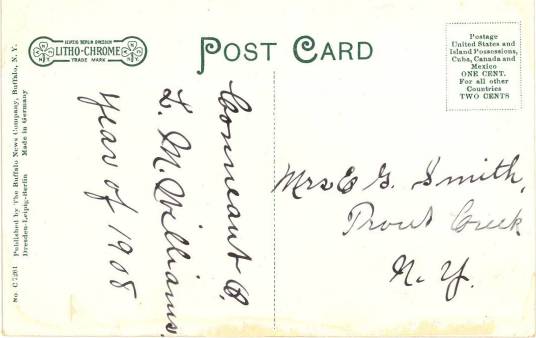 LEIPZIG BERLIN DRESDEN
LITHO-CHROME
TRADE MARK
POST CARD
Postage
United States and
Island Possessions,
Cuba, Canada and
Mexico
ONE CENT.
For all other
Countries
TWO CENTS
No C 7261 Published by The Buffalo News Company, Buffalo, N. Y.
Dresden-Leipzig-Berlin Made in Germany
Conneaut O.
L. M. Williams.
year of 1908
Mrs E G. Smith,
Trout Creek
N. Y.